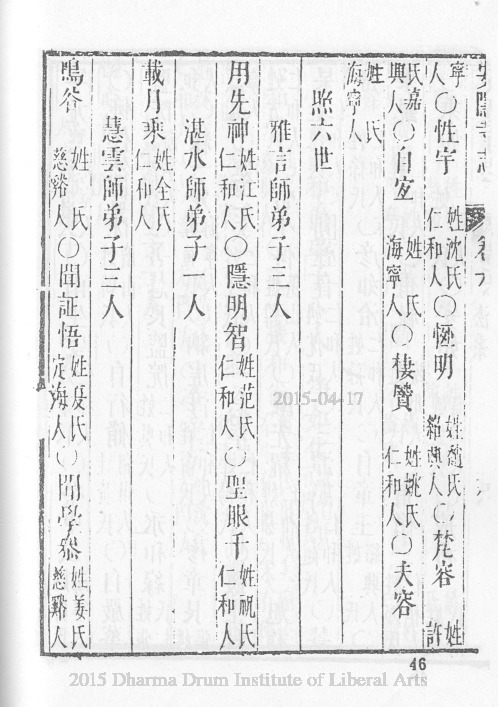 安隱寺志 卷六
寧人〇性宇姓沈氏仁和人〇恆明姓氏紹興人〇梵容姓許
氏嘉興人〇自姓氏海寧人〇棲贇姓姚氏仁和人〇夫容
姓氏海寧人
照六世
雅言師弟子三人
用先神姓江氏仁和人〇隱明智姓范氏仁和人〇聖眼千姓祝氏仁和人
湛水師弟子一人
載月乘姓全氏仁和人
慧雲師弟子三人
鳴谷姓氏慈谿人〇聞証悟姓夏氏定海人〇聞學姓姜氏慈谿人
46
2015-04-17
2015 Dharma Drum Institute of Liberal Arts